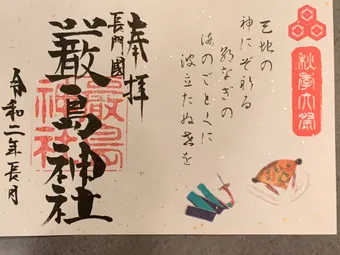 秋季大祭
天地の
神にぞ祈る
朝なぎの
海のごとくに
波立たぬ世を
奉拝
長門國
嚴島神社
嚴島
神社
令和二年長月